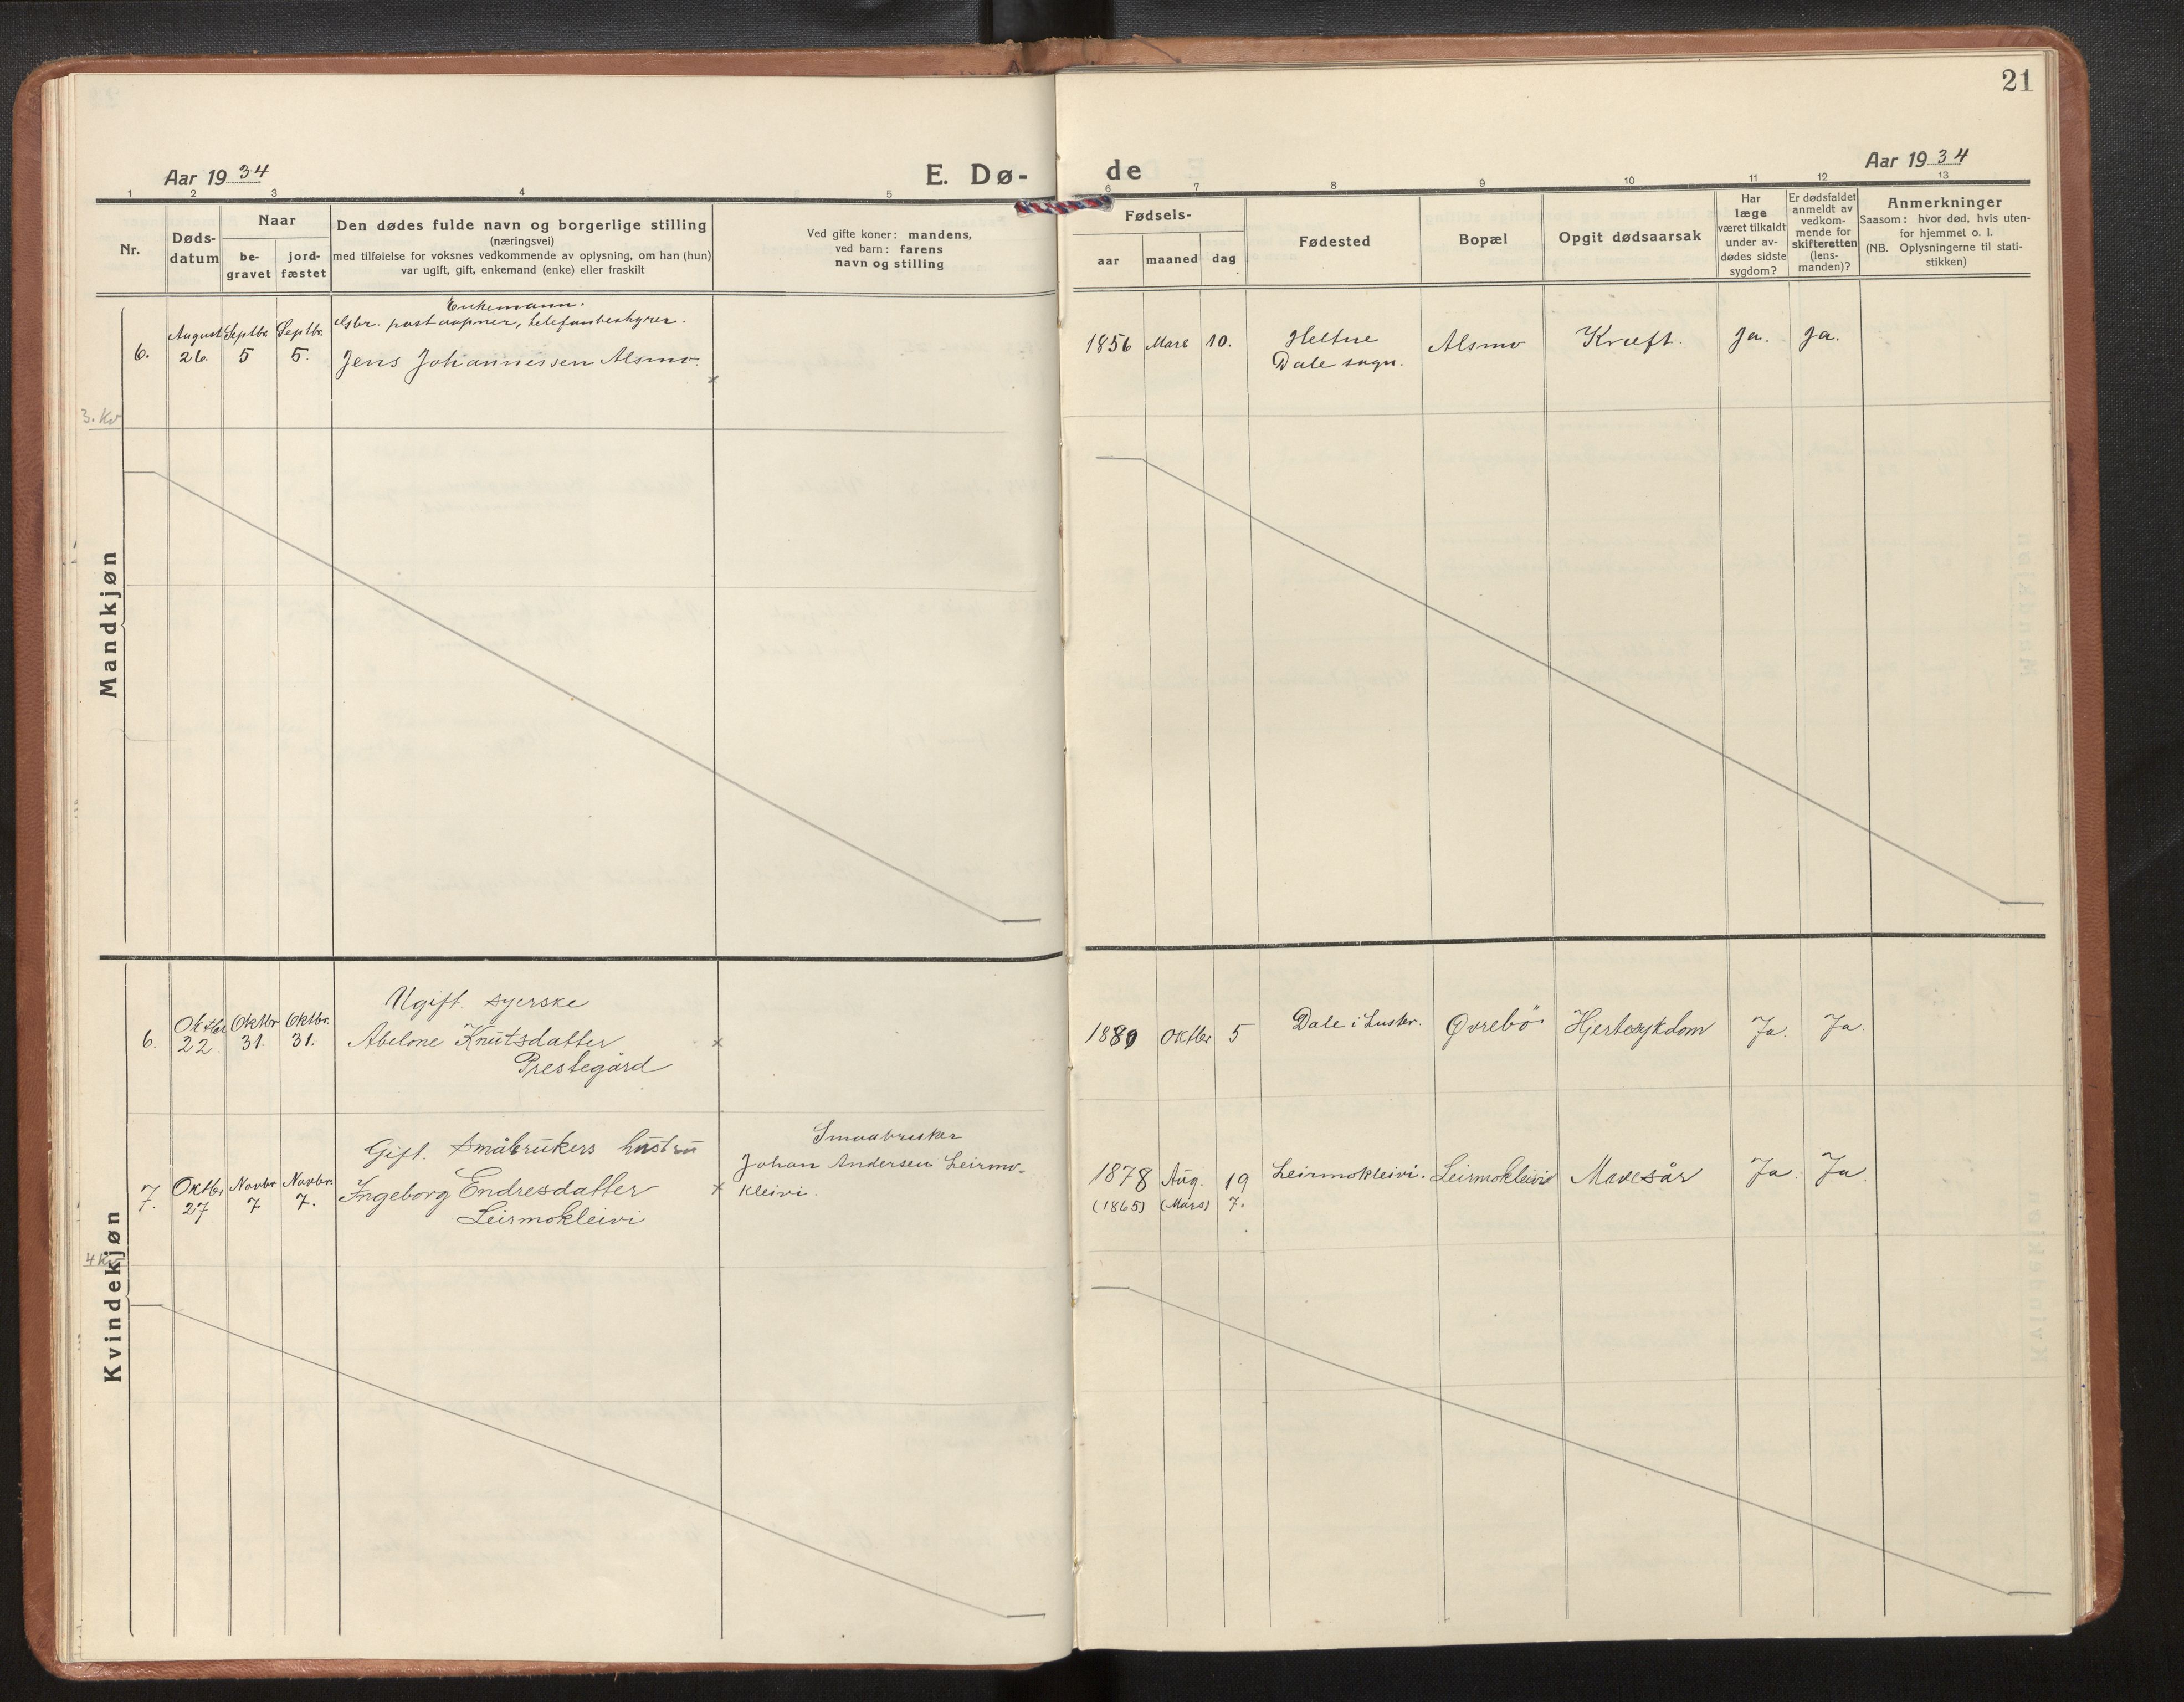 21
Aar 1934
E. Dø-
de
Aar 1934
1 2 3 4 5 6 7 8 9 10 11 12 13
Nr.
Døds-
datum
Naar
be-
gravet
jord-
fæstet
Den dødes fulde navn og borgerlige stilling
(næringsvei)
med tilføielse for voksnes vedkommende av oplysning, om han (hun)
var ugift, gift, enkemand (enke) eller fraskilt
Ved gifte koner: mandens,
ved barn: farens
navn og stilling
Fødsels-
aar maaned dag
Fødested
Bopæl
Opgit dødsaarsak
Har
læge
været tilkaldt
under av-
dødes sidste
sygdom?
Er dødsfaldet
anmeldt av
vedkom-
mende for
skifteretten
(lens-
manden)?
Anmerkninger
Saasom: hvor død, hvis uten-
for hjemmet o. l.
(NB. Oplysningerne til stati-
stikken)
Mandkjøn
6.
August
26.
Septbr.
5
Septbr.
5.
Enkemann.
Gsbr. postaapner, telefonbestyrer.
Jens Johannessen Alsmo.
1856 Mars 10.
Heltne
Dale sogn.
Alsmo
Kræft.
Ja.
Ja.
3. Kv
Kvindekjøn
6.
Oktbr
22.
Oktbr
31.
Oktbr.
31.
Ugift. syerske
Abelone Knutsdatter
Prestegård
1880 Oktbr 5
Dale i Luster.
Øvrebö
Hjertesykdom
Ja.
Ja.
7.
Oktbr
27
Novbr
7
Novbr.
7.
Gift. Småbrukers hustru
Ingeborg Endresdatter
Leirmokleivi
Smaabruker
Johan Andersen Leirmo-
kleivi.
1878 Aug. 19
(1865) (Mars) 7.
Leirmokleivi.
Leirmokleivi
Mavesår
Ja.
Ja.
4 Kv